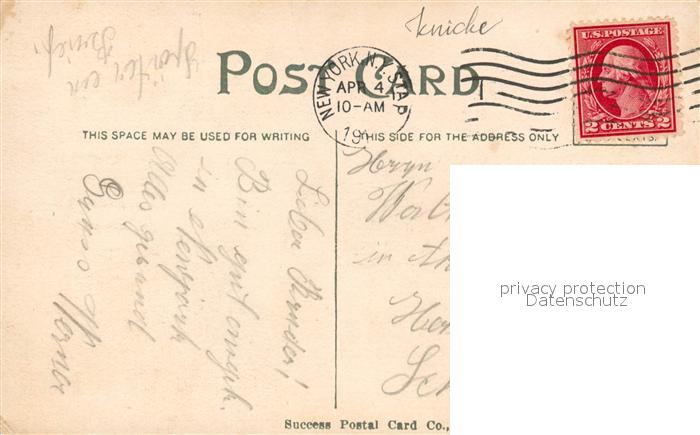 knicke
POST CARD
U.S. POSTAGE
2 CENTS 2
NEW YORK, N.Y. STA P
APR 4
10-AM
19
THIS SPACE MAY BE USED FOR WRITING
THIS SIDE FOR THE ADDRESS ONLY
Später ein
Brief.
Lieber Bruder!
Bin gut
in Newyork
Alles gesund
Gruss
Werner
Herrn
in
privacy protection
Datenschutz
Success Postal Card Co.,